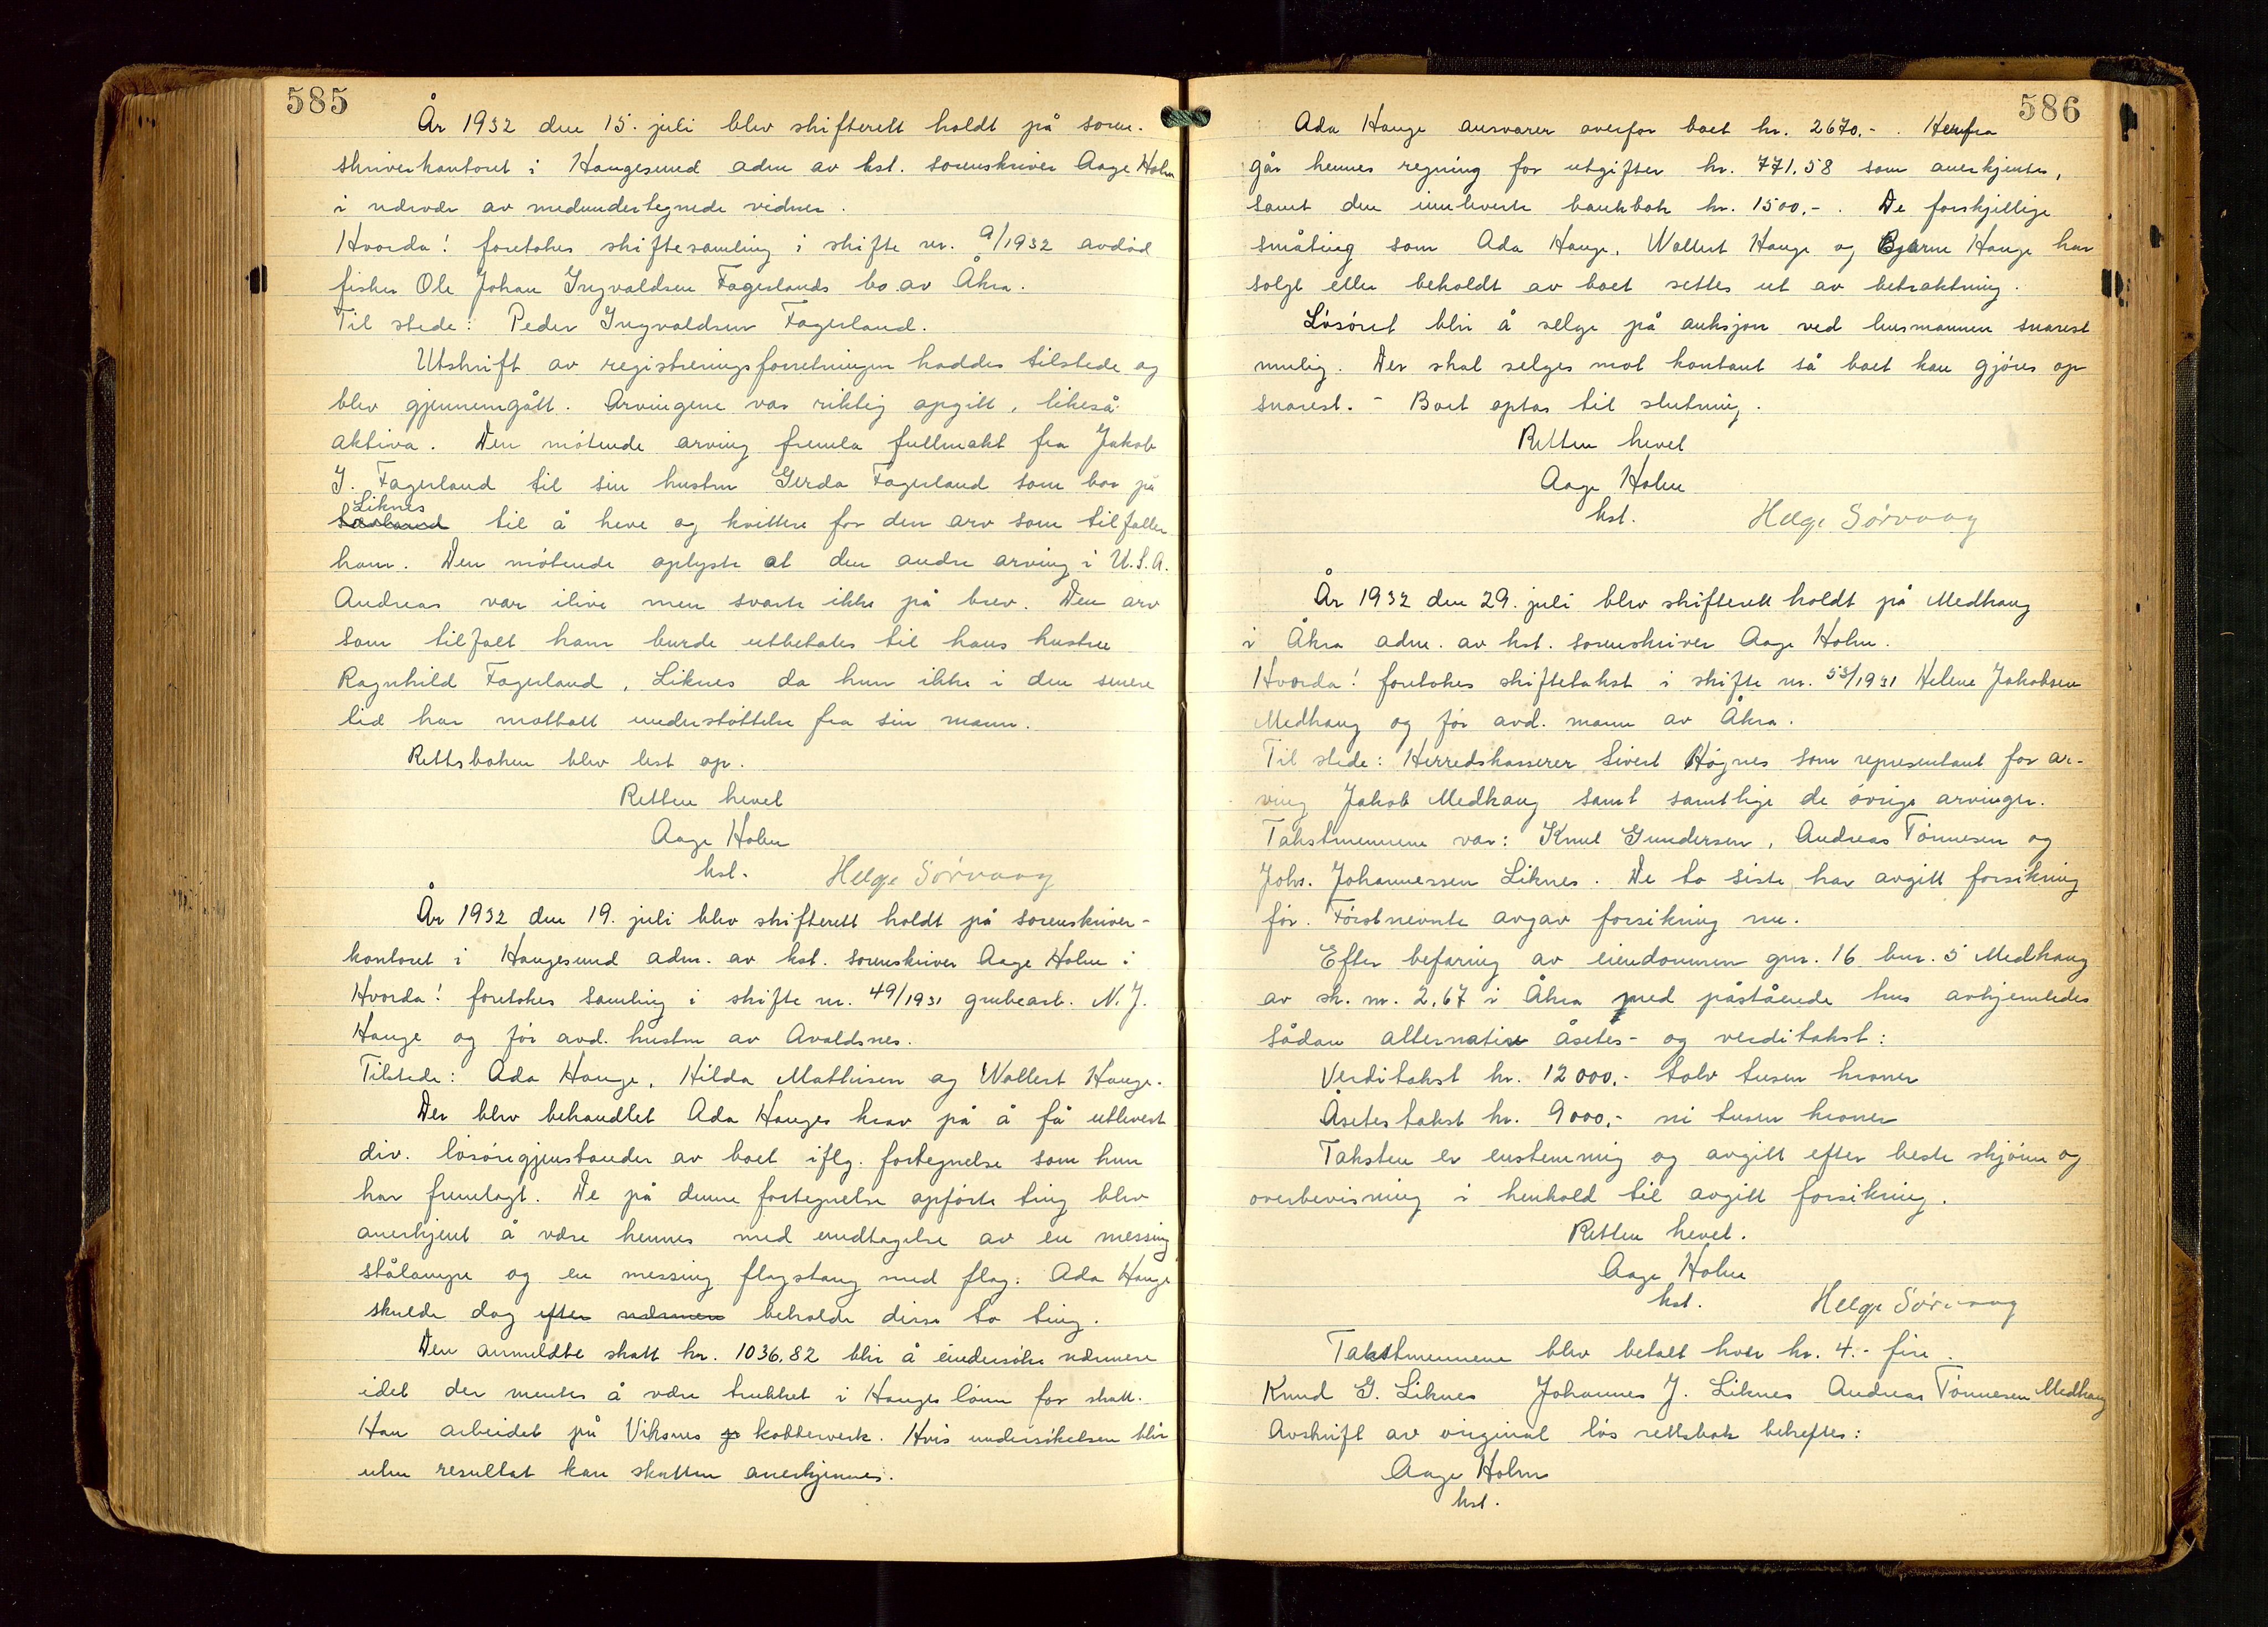 585
År 1932 den 15. juli blev skifterett holdt på soren-
skriverkontoret i Haugesund adm av kst. sorenskriver Aage Holm
i nærvær av medundertegnede vidner.
Hvorda! foretokes skiftesamling i skifte nr. 9/1932 avdød
fisker Ole Johan Ingvaldsen Fagerlands bo av Åkra.
Til stede: Peder Ingvaldsen Fagerland.
Utskrift av registreringsforretningen haddes tilstede og
blev gjennemgått. Arvingene var riktig opgitt, likeså
aktiva. Den møtende arving fremla fullmakt fra Jakob
J. Fagerland til sin hustru Gerda Fagerland som bor på
Liknes
til å heve og kvittere for den arv som tilfaller
ham. Den møtende oplyste at den andre arving i U.S.A.
Andreas var ilive men svarte ikke på brev. Den arv
som tilfalt ham burde utbetales til hans hustru
Ragnhild Fagerland, Liknes da hun ikke i den senere
tid har mottatt understøttelse fra sin mann.
Rettsboken blev lest op.
Retten hevet
Aage Holm
kst. Helge Sørvaag
År 1932 den 19. juli blev skifterett holdt på sorenskriver-
kontoret i Haugesund adm. av kst. sorenskriver Aage Holm i
Hvorda! foretokes samling i skifte nr. 49/1931 grubearb. N. J.
Hauge og før avd. hustru av Avaldsnes.
Tilstede: Ada Hauge, Hilda Mathisen og Wallert Hauge.
Der blev behandlet Ada Hauges krav på å få utlevert
div. løsøregjenstander av boet iflg. fortegnelse som hun
har fremlagt. De på denne fortegnelse opførte ting blev
anerkjent å være hennes med undtagelse av en messing
stålampe og en messing flagstang med flag. Ada Hauge
skulde dog efter nærmere beholde disse to ting.
Den anmeldte skatt kr. 1036,82 blir å undersøke nærmere
idet der mentes å være trukket i Hauges lønn for skatt.
Han arbeidet på Viksnes kobberverk. Hvis undersøkelsen blir
uten resultat kan skatten anerkjennes.
586
Ada Hauge ansvarer overfor boet kr. 2670,-. Herfra
går hennes regning for utgifter kr. 771,58 som anerkjentes,
samt den innleverte bankbok kr. 1500,-. De forskjellige
småting som Ada Hauge, Wallert Hauge og Bjarne Hauge har
solgt eller beholdt av boet settes ut av betraktning.
Løsøret blir å selge på auksjon ved lensmannen snarest
mulig. Der skal selges mot kontant så boet kan gjøres op
snarest. - Boet optas til slutning.
Retten hevet
Aage Holm
kst. Helge Sørvaag
År 1932 den 29. juli blev skifterett holdt på Medhaug
i Åkra adm. av kst. sorenskriver Aage Holm.
Hvorda! foretokes skiftetakst i skifte nr. 53/1931 Helene Jakobsen
Medhaug og før avd. mann av Åkra.
Til stede: Herredskasserer Sivert Høgnes som representant for ar-
ving Jakob Medhaug samt samtlige de øvrige arvinger.
Takstmennene var: Knut Gundersen, Andreas Tønnesen og
Johs. Johannessen Liknes. De to siste har avgitt forsikring
før. Førstnevnte avgav forsikring nu.
Efter befaring av eiendommen gnr. 16 bnr. 5 Medhaug
av sk. m. 2,67 i Åkra med påstående hus avhjemledes
sådan alternativ åsetes- og verditakst:
Verditakst kr. 12000,- tolv tusen kroner
Åsetestakst kr. 9000,- ni tusen kroner
Taksten er enstemmig og avgitt efter beste skjønn og
overbevisning i henhold til avgitt forsikring.
Retten hevet.
Aage Holm
kst. Helge Sørvaag
Takstmennene blev betalt hver kr. 4.- fire.
Knud G. Liknes Johannes J. Liknes Andreas Tønnesen Medhaug
Avskrift av original løs rettsbok bekreftes:
Aage Holm
kst.